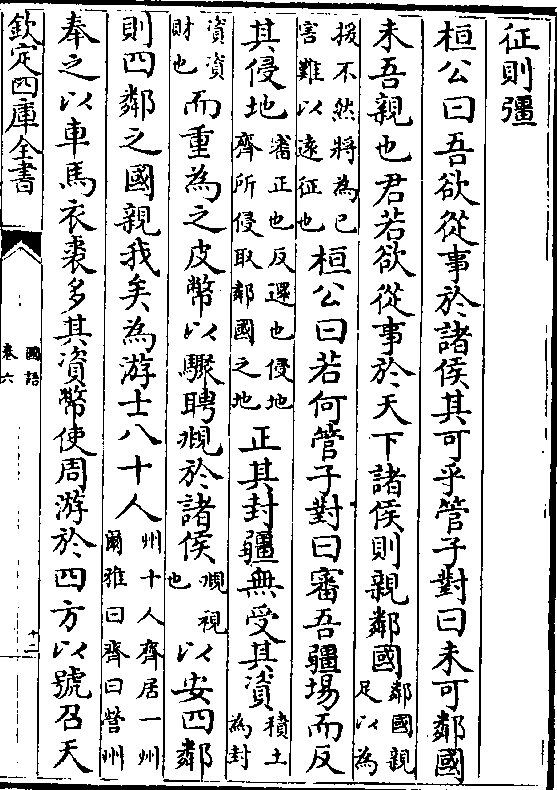 征則彊
桓公曰吾欲從事於諸侯其可乎管子對曰未可鄰國
未吾親也君若欲從事於天下諸侯則親鄰國鄰國親足以為
援不然將為己害難以遠征也桓公曰若何管子對曰審吾疆場而反
其侵地審正也反還也侵地齊所侵取鄰國之地正其封疆無受其資積土為封
資資財也而重為之皮幣以驟聘覜於諸侯覜視也以安四鄰
則四鄰之國親我矣為游士八十人州十人齊居一州爾雅曰齊曰營州
奉之以車馬衣裘多其資幣使周游於四方以號召天
欽定四庫全書
國語
卷六
十二